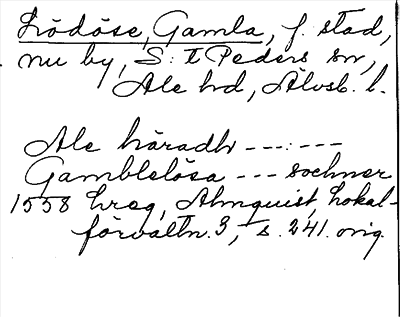 Lödöse, Gamla, f. stad,
nu by, S:t Peders sn,
Ale hd, Älvsb. l.
Ale häradh ---:---
Gamblelösa --- sochner
1558 Lreg, Almquist, Lokal-
förvaltn. 3, s. 241. orig.